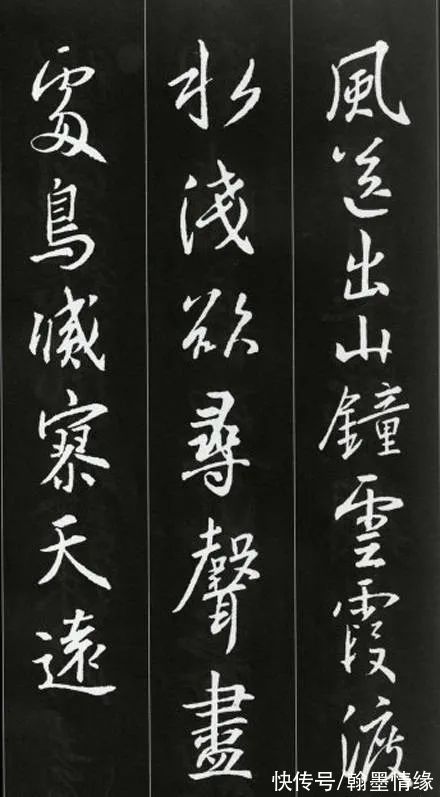 風送出山鐘雲霞渡
水淺欲尋聲盡
處鳥滅寥天遠
快传号/翰墨情缘